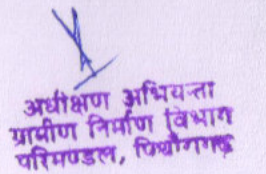 अधीक्षण अभियन्ता
ग्रामीण निर्माण विभाग
परिमण्डल, पिथौरागढ़